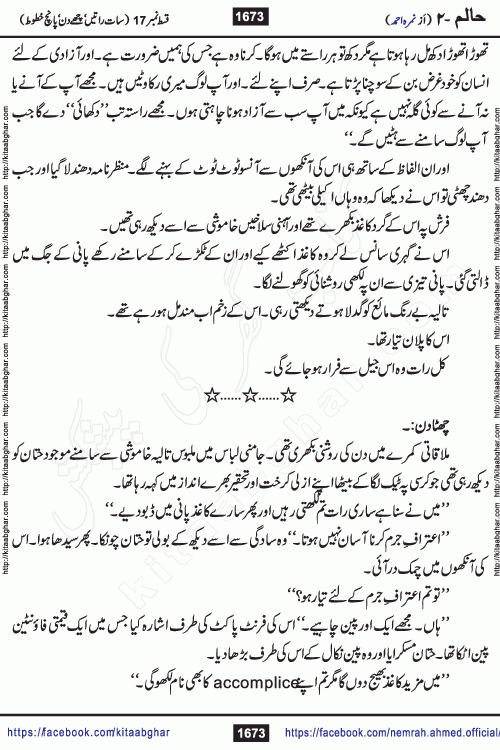 حالم -۲ (از نمرہ احمد) 1673 قسط نمبر 17 (سات راتیں، چھے دن، پانچ خطوط)
تھوڑا تھوڑا دکھ مل رہا ہوتا ہے مگر دکھ تو ہر راستے میں ہوگا۔ کرنا وہ ہے جس کی ہمیں ضرورت ہے۔ اور آزادی کے لئے
انسان کو خود غرض بن کے سوچنا پڑتا ہے۔ صرف اپنے لئے۔ اور آپ لوگ میری رکاوٹیں ہیں۔ مجھے آپ کے آنے یا
نہ آنے سے کوئی گلہ نہیں ہے کیونکہ میں آپ سب سے آزاد ہونا چاہتی ہوں۔ مجھے راستہ تب ’’دکھائی‘‘ دے گا جب
آپ لوگ سامنے سے ہٹیں گے۔‘‘
اور ان الفاظ کے ساتھ ہی اس کی آنکھوں سے آنسو ٹوٹ ٹوٹ کے بہنے لگے۔ منظر نامہ دھندلا گیا اور جب
دھند چھٹی تو اس نے دیکھا کہ وہ وہاں اکیلی بیٹھی تھی۔
فرش پہ اس کے گرد کاغذ بکھرے تھے اور آہنی سلاخیں خاموشی سے اسے دیکھ رہی تھیں۔
اس نے گہری سانس لے کر وہ کاغذ اکٹھے کیے اور ان کے ٹکڑے کر کے سامنے رکھے پانی کے جگ میں
ڈالتی گئی۔ پانی تیزی سے ان پہ لکھی روشنائی کو گھولنے لگا۔
تالیہ بے رنگ مائع کو گدلا ہوتے دیکھتی رہی۔ اس کے زخم اب مندمل ہو رہے تھے۔
اس کا پلان تیار تھا۔
کل رات وہ اس جیل سے فرار ہو جائے گی۔
☆......☆......☆
چھٹا دن:۔
ملاقاتی کمرے میں دن کی روشنی بکھری تھی۔ جامنی لباس میں ملبوس تالیہ خاموشی سے سامنے موجود حثان کو
دیکھ رہی تھی جو کرسی پہ ٹیک لگا کے بیٹھا اپنے ازلی کرخت اور تحقیر بھرے انداز میں کہہ رہا تھا۔
’’میں نے سنا ہے ساری رات تم لکھتی رہیں اور پھر سارے کاغذ پانی میں ڈبو دیے۔‘‘
’’اعتراف جرم کرنا آسان نہیں ہوتا۔‘‘ وہ سادگی سے اسے دیکھ کے بولی تو حثان چونکا۔ پھر سیدھا ہوا۔ اس
کی آنکھوں میں چمک در آئی۔
’’تو تم اعترافِ جرم کے لئے تیار ہو؟‘‘
’’ہاں۔ مجھے ایک اور پین چاہیے۔‘‘ اس کی فرنٹ پاکٹ کی طرف اشارہ کیا جس میں ایک قیمتی فاؤنٹین
پین اٹکا تھا۔ حثان مسکرایا اور وہ پین نکال کے اس کی طرف بڑھا دیا۔
’’میں مزید کاغذ بھیج دوں گا مگر تم اپنے accomplice کا بھی نام لکھو گی۔‘‘
https://facebook.com/kitaabghar 1673 https://facebook.com/nemrah.ahmed.official/
http://kitaabghar.com